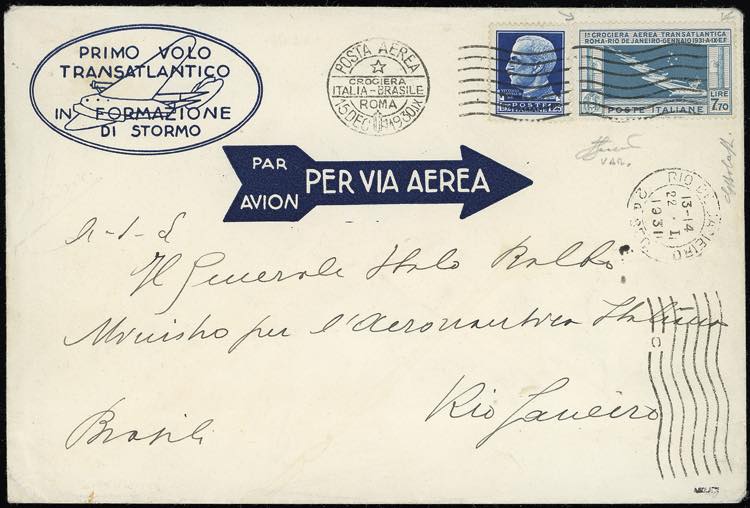 PRIMO VOLO
TRANSATLANTICO
IN FORMAZIONE
DI STORMO
POSTA AEREA
CROCIERA
ITALIA-BRASILE
15 DEC 1930 IX
ROMA
POSTE
1,25
1ª CROCIERA AEREA TRANSATLANTICA
ROMA-RIO DE JANEIRO-GENNAIO 1931-A.IX E.F.
POSTE ITALIANE
LIRE
7,70
VAR.
PAR
AVION
PER VIA AEREA
RIO DE JANEIRO
13-14
22 . I
1931
A-S-E
Il Generale Italo Balbo
Ministro per l'Aeronautica Italiana
Rio Janeiro
Brasile